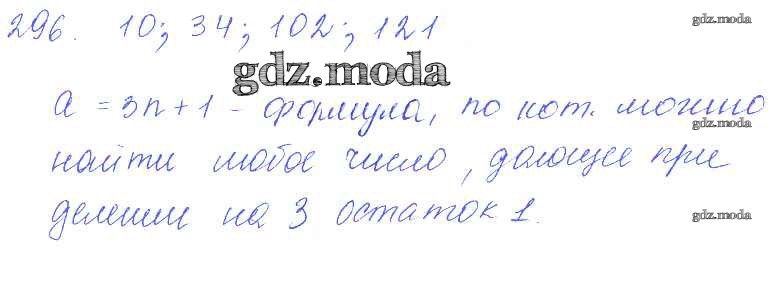 296. 10; 34; 102; 121
gdz.moda
gdz.moda
a = 3n + 1 - формула, по кот. можно
gdz.moda
найти любое число, дающее при
делении на 3 остаток 1.
gdz.moda